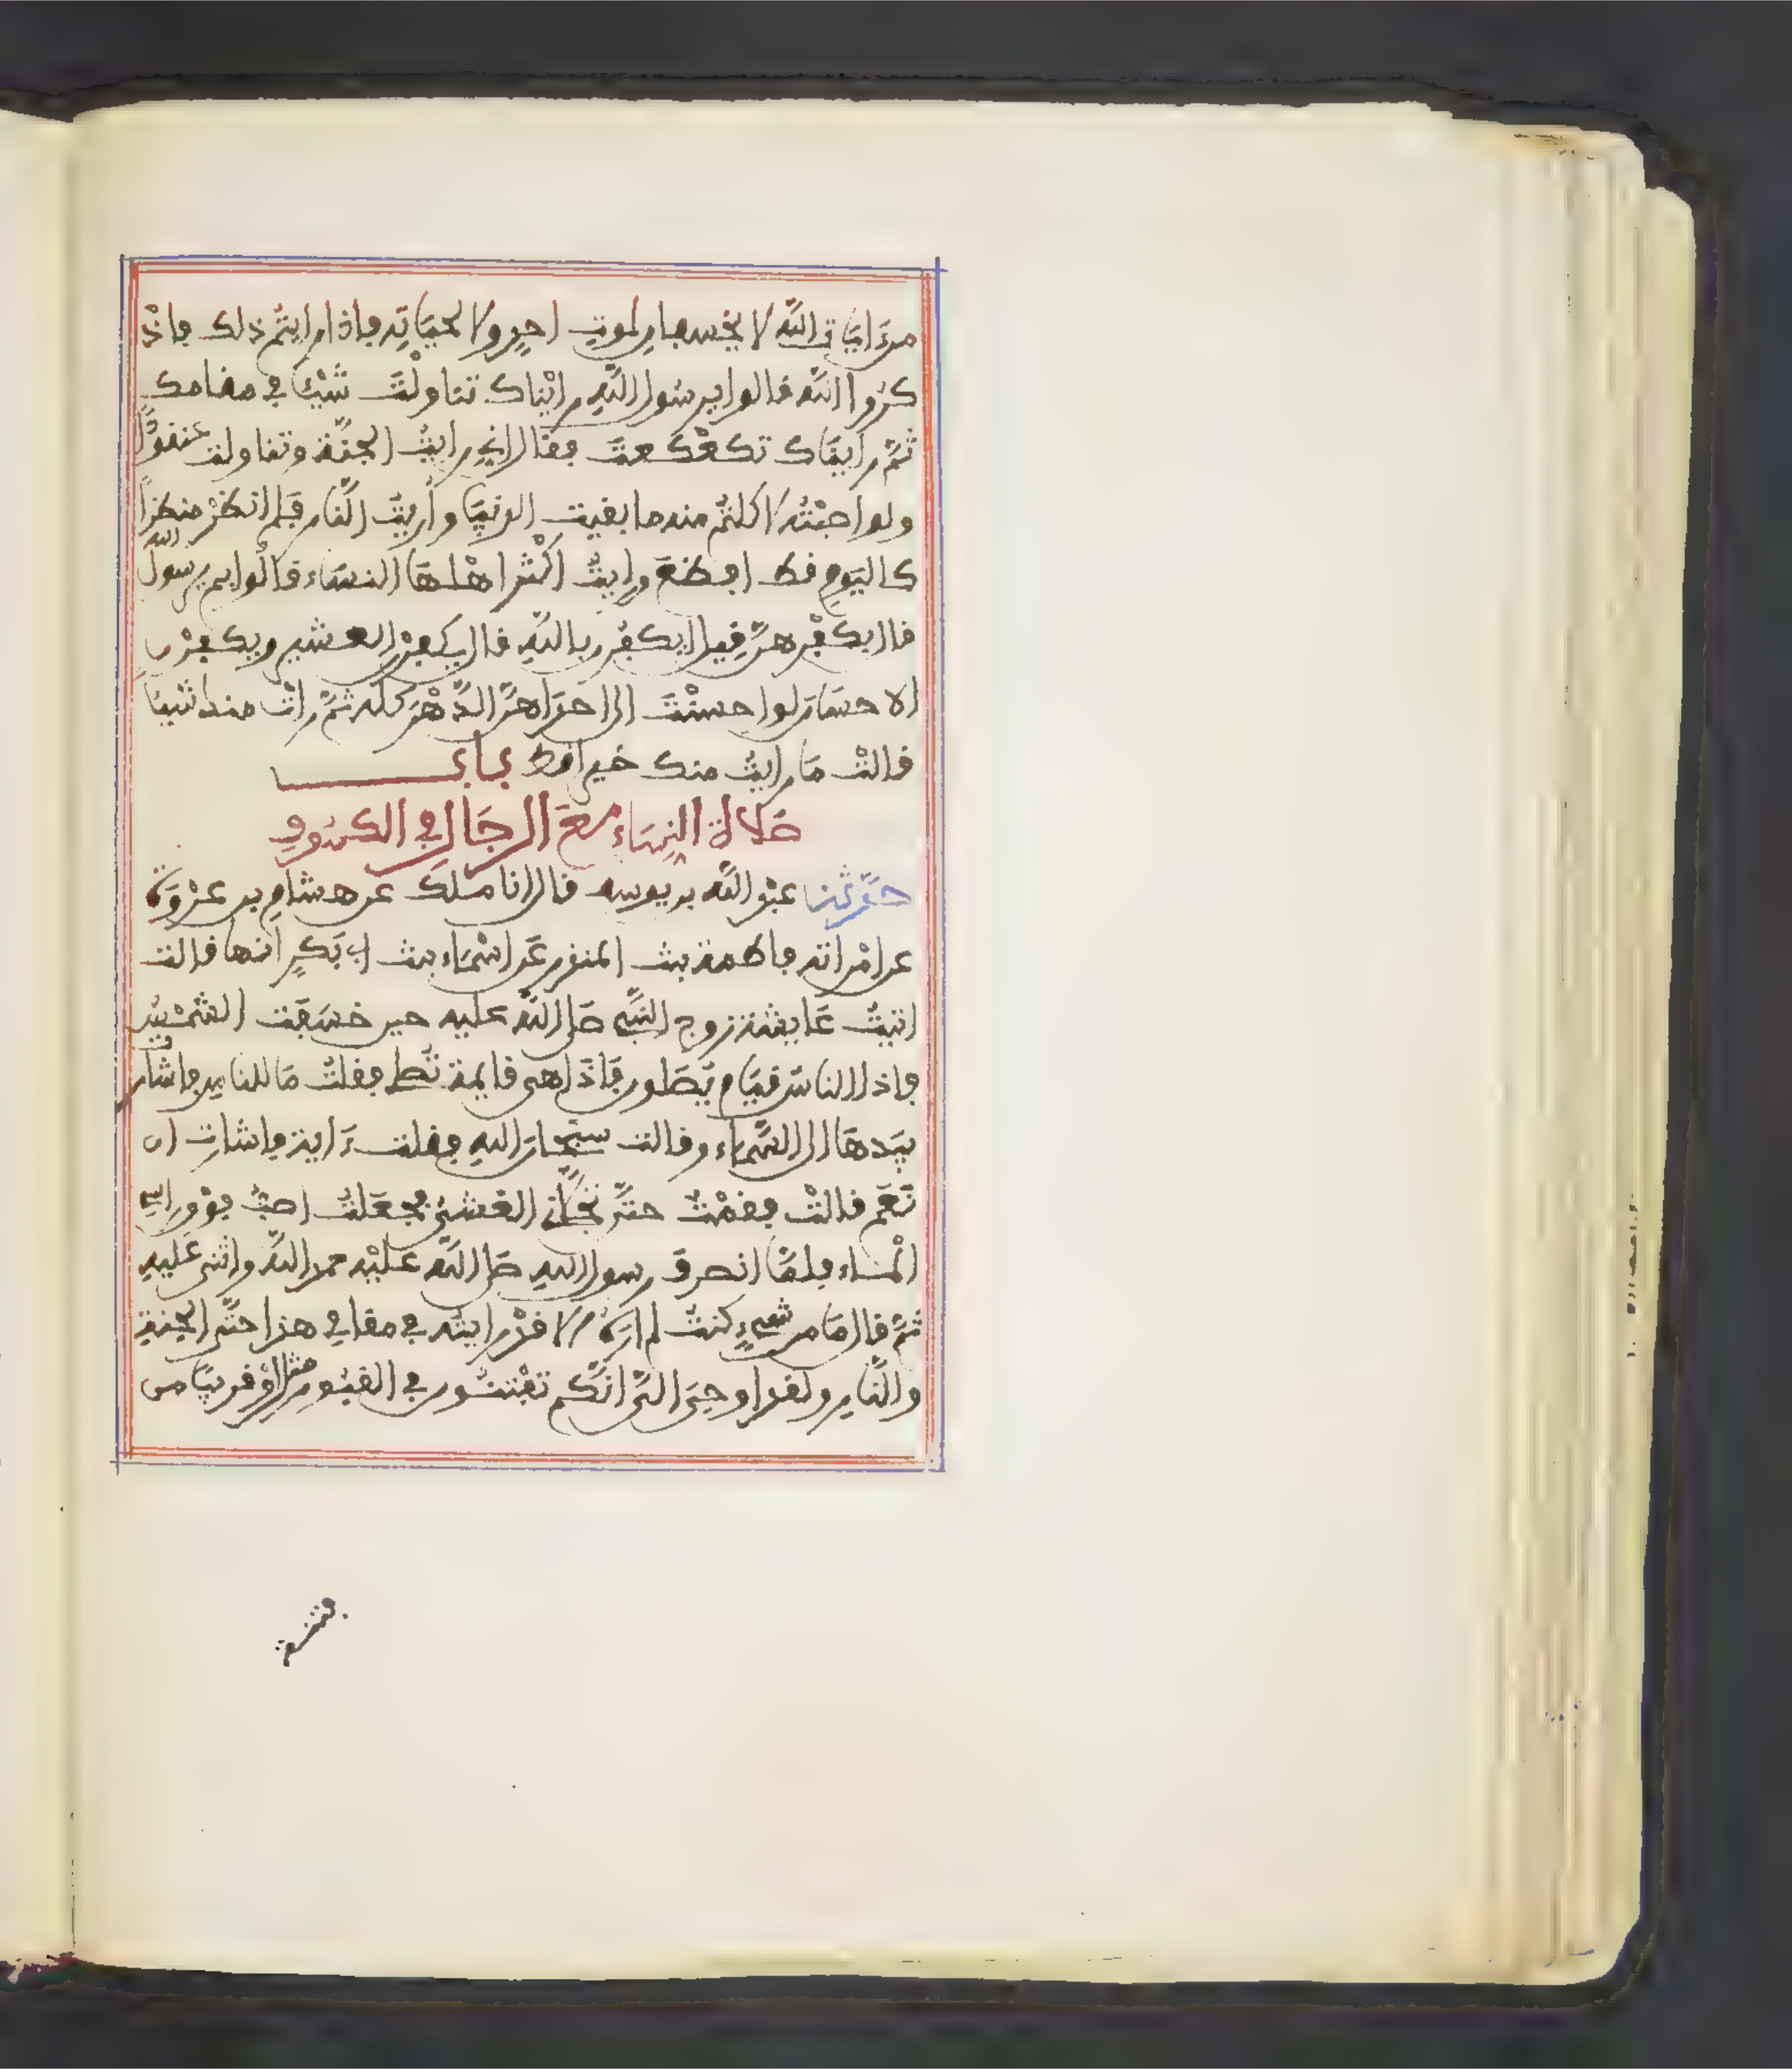 من ءايات الله لا يخسفان لموت احد ولا لحياته فاذا رايتم ذلك فاذ
كروا الله قالوا يرسول الله رايناك تناولت شيئا في مقامك
ثم رايناك تكعكعت فقال اني رايت الجنة وتناولت عنقودا
ولو اصبته لاكلتم منه ما بقيت الدنيا واريت النار فلم انظر منظرا
كاليوم قط افظع ورايت اكثر اهلها النساء قالوا بم يرسول الله
قال بكفرهن قيل ايكفرن بالله قال يكفرن العشير ويكفرن
الاحسان لو احسنت الى احداهن الدهر كله ثم رات منك شيئا
قالت ما رايت منك خيرا قط باب
صلاة النساء مع الرجال في الكسوف
حدثنا عبد الله بن يوسف قال انا ملك عن هشام بن عروة
عن امراته فاطمة بنت المنذر عن اسماء بنت ابي بكر انها قالت
اتيت عايشة زوج النبي صلى الله عليه حين خسفت الشمس
فاذا الناس قيام يصلون فاذا هي قايمة تصلي فقلت ما للناس فاشارت
بيدها الى السماء وقالت سبحان الله فقلت ءاية فاشارت ان
نعم قالت فقمت حتى تجلاني الغشي فجعلت اصب فوق راسي
الماء فلما انصرف رسول الله صلى الله عليه حمد الله واثنى عليه
ثم قال ما من شيء كنت لم اره الا قد رايته في مقامي هذا حتى الجنة
والنار ولقد اوحي الي انكم تفتنون في القبور مثل او قريبا من